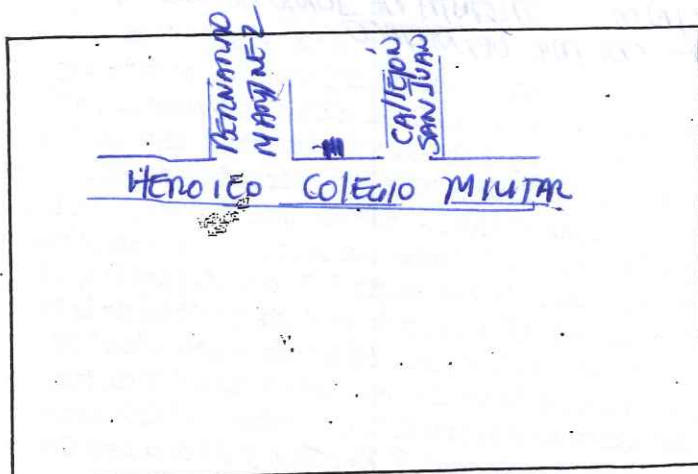 BERNARDO
MARTINEZ
CALLEJON
SAN JUAN
HEROICO COLEGIO MILITAR